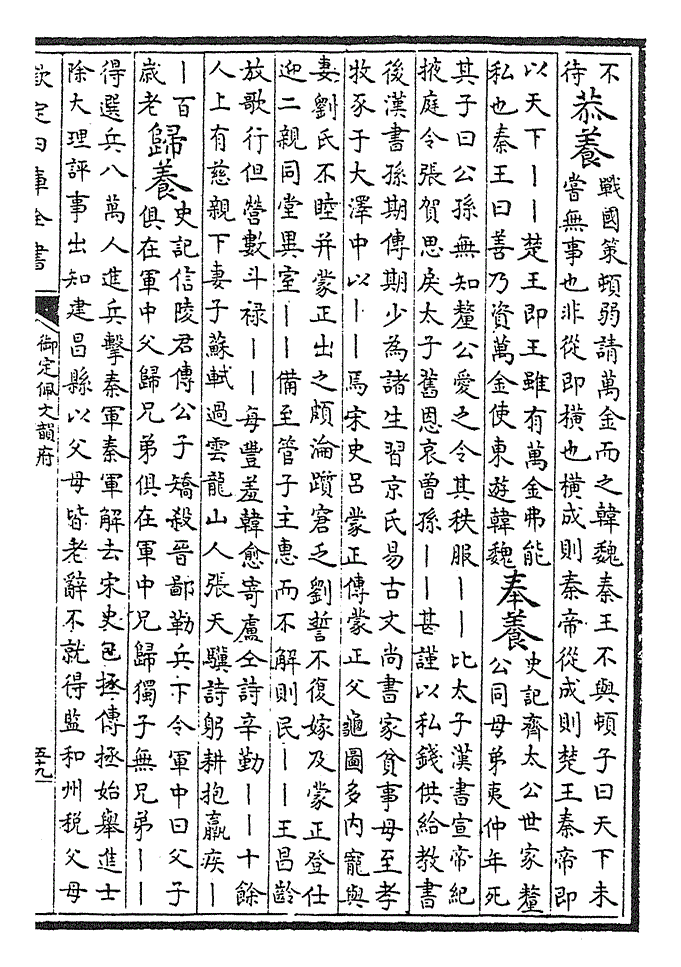 不
待
恭養
戰國策頓弱請萬金而之韓魏秦王不與頓子曰天下未
嘗無事也非從即橫也橫成則秦帝從成則楚王秦帝即
以天下｜｜楚王即王雖有萬金弗能
私也秦王曰善乃資萬金使東遊韓魏
奉養
史記齊太公世家釐
公同母弟夷仲年死
其子曰公孫無知釐公愛之令其秩服｜｜比太子漢書宣帝紀
掖庭令張賀思戾太子舊恩哀曾孫｜｜甚謹以私錢供給教書
後漢書孫期傳期少為諸生習京氏易古文尚書家貧事母至孝
牧豕于大澤中以｜｜焉宋史呂蒙正傳蒙正父龜圖多內寵與
妻劉氏不睦并蒙正出之頗淪躓窘乏劉誓不復嫁及蒙正登仕
迎二親同堂異室｜｜備至管子主惠而不解則民｜｜王昌齡
放歌行但營數斗祿｜｜每豐羞韓愈寄盧仝詩辛勤｜｜十餘
人上有慈親下妻子蘇軾過雲龍山人張天驥詩躬耕抱羸疾｜
｜百
歲老
歸養
史記信陵君傳公子矯殺晉鄙勒兵下令軍中曰父子
俱在軍中父歸兄弟俱在軍中兄歸獨子無兄弟｜｜
得選兵八萬人進兵擊秦軍秦軍解去宋史包拯傳拯始舉進士
除大理評事出知建昌縣以父母皆老辭不就得監和州税父母
欽定四庫全書
御定佩文韻府
五十九